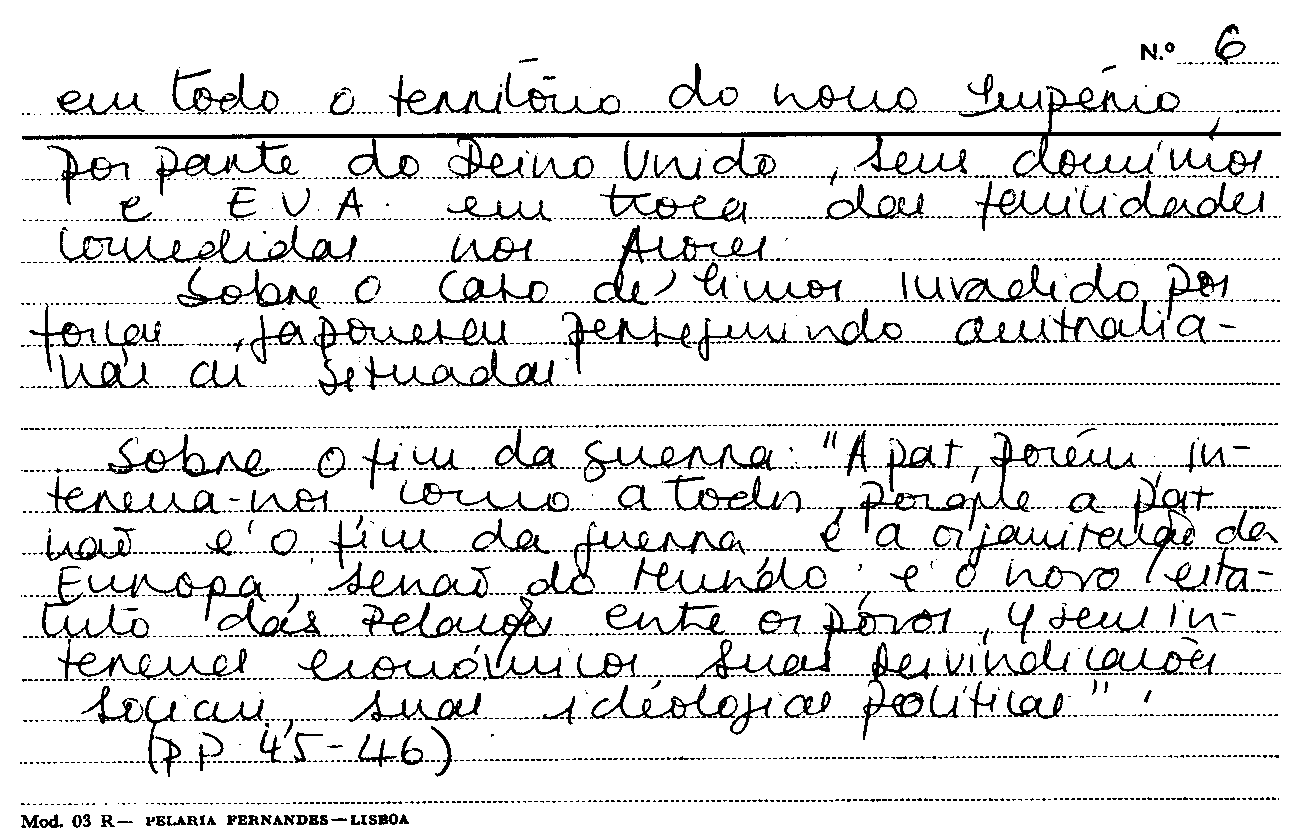 N.º 6
em todo o território do nosso Império,
por parte do Reino Unido, seus domínios
e E.U.A. em troca das facilidades
concedidas nos Açores.
Sobre o caso de Timor invadido por
forças japonesas perseguindo australia-
nas aí situadas
Sobre o fim da guerra: "A paz, porém, in-
teressa-nos como a todos, porque a paz
não é o fim da guerra é a organização da
Europa, senão do Mundo; é o novo esta-
tuto das relações entre os povos, q seus in-
teresses económicos, suas reivindicações
sociais, suas ideologias políticas".
(pp. 45-46)
Mod. 03 R— PELARIA FERNANDES—LISBOA